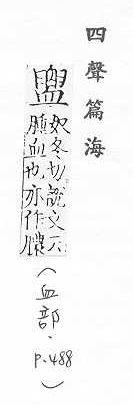 四聲篇海
奴冬切說文云
腫血也亦作膿
(血部.p.488)